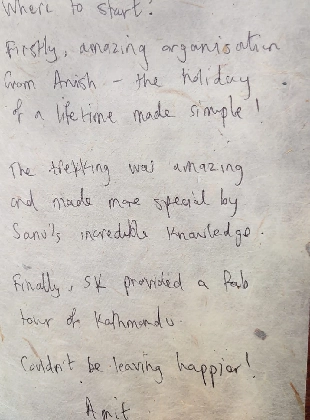 Where to start!
Firstly, amazing organisation
from Anish - the holiday
of a lifetime made simple!
The trekking was amazing
and made more special by
Sanu's incredible knowledge.
Finally, SK provided a fab
tour of Kathmandu.
Couldn't be leaving happier!
Amit